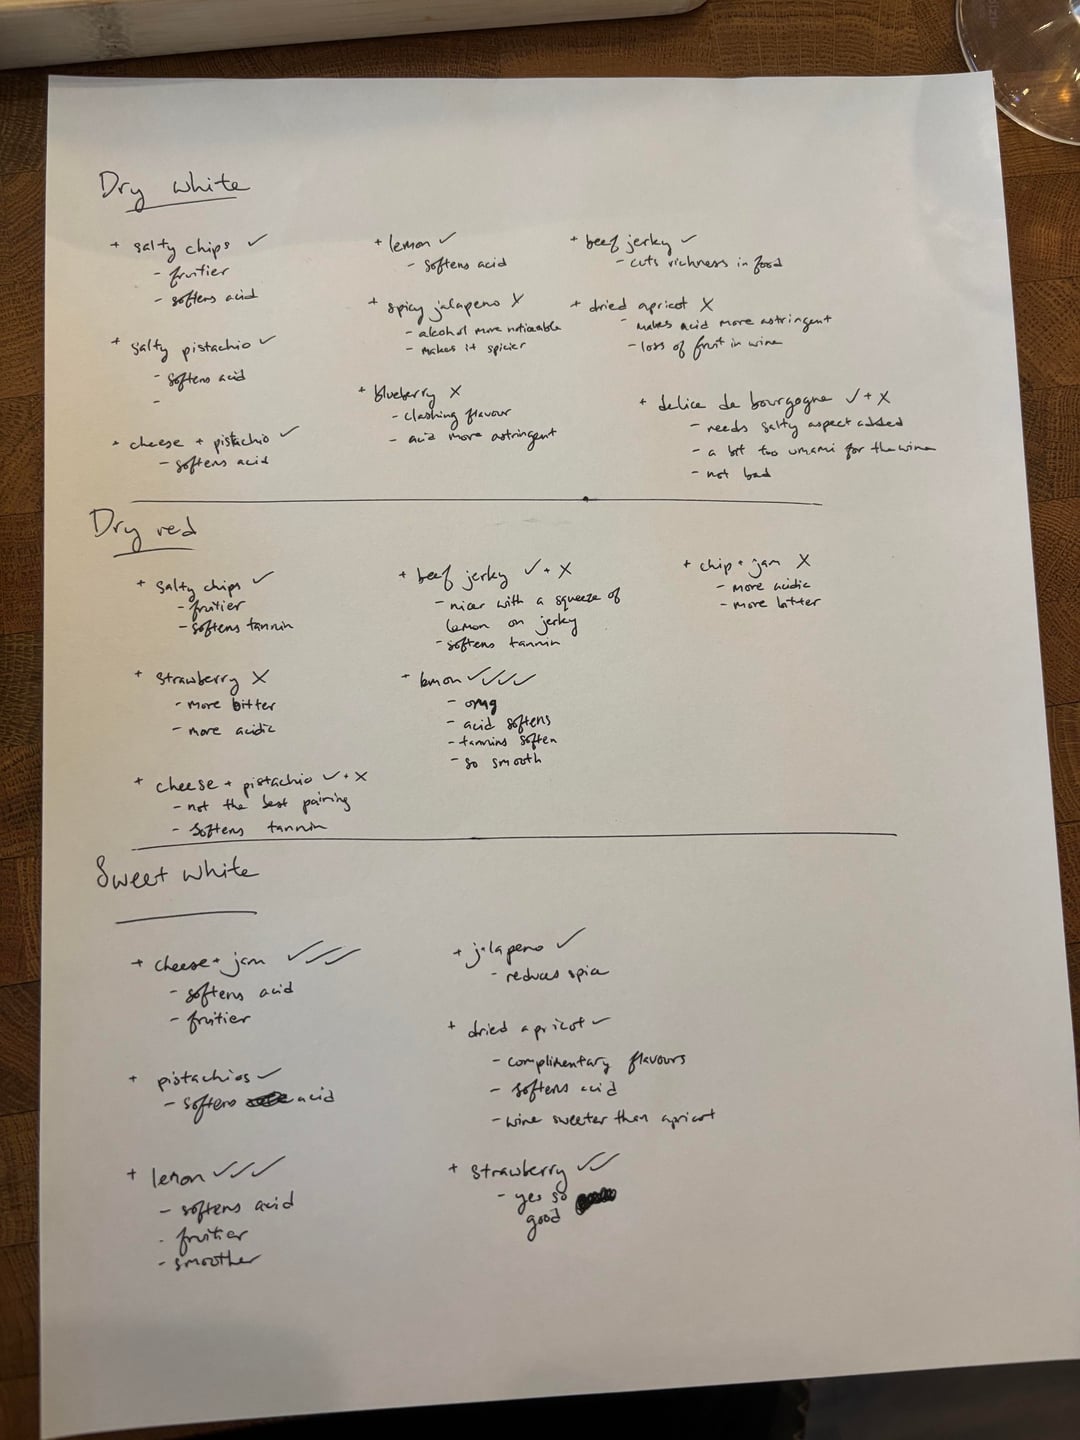 Dry white
+ salty chips ✓
- fruitier
- softens acid
+ salty pistachio ✓
- softens acid
-
+ cheese + pistachio ✓
- softens acid
+ lemon ✓
- softens acid
+ spicy jalapeno X
- alcohol more noticeable
- makes it spicier
+ blueberry X
- clashing flavour
- acid more astringent
+ beef jerky ✓
- cuts richness in food
+ dried apricot X
- makes acid more astringent
- loss of fruit in wine
+ delice de bourgogne ✓ + X
- needs salty aspect added
- a bit too umami for the wine
- not bad
Dry red
+ salty chips ✓
- fruitier
- softens tannin
+ strawberry X
- more bitter
- more acidic
+ cheese + pistachio ✓ + X
- not the best pairing
- softens tannin
+ beef jerky ✓ + X
- nicer with a squeeze of
lemon on jerky
- softens tannin
+ lemon ✓✓✓
- omg
- acid softens
- tannins soften
- so smooth
+ chip + jam X
- more acidic
- more bitter
Sweet white
+ cheese + jam ✓✓✓
- softens acid
- fruitier
+ pistachios ✓
- softens acid
+ lemon ✓✓✓
- softens acid
- fruitier
- smoother
+ jalapeno ✓
- reduces spice
+ dried apricot ✓
- complimentary flavours
- softens acid
- wine sweeter than apricot
+ strawberry ✓✓
- yes so
good